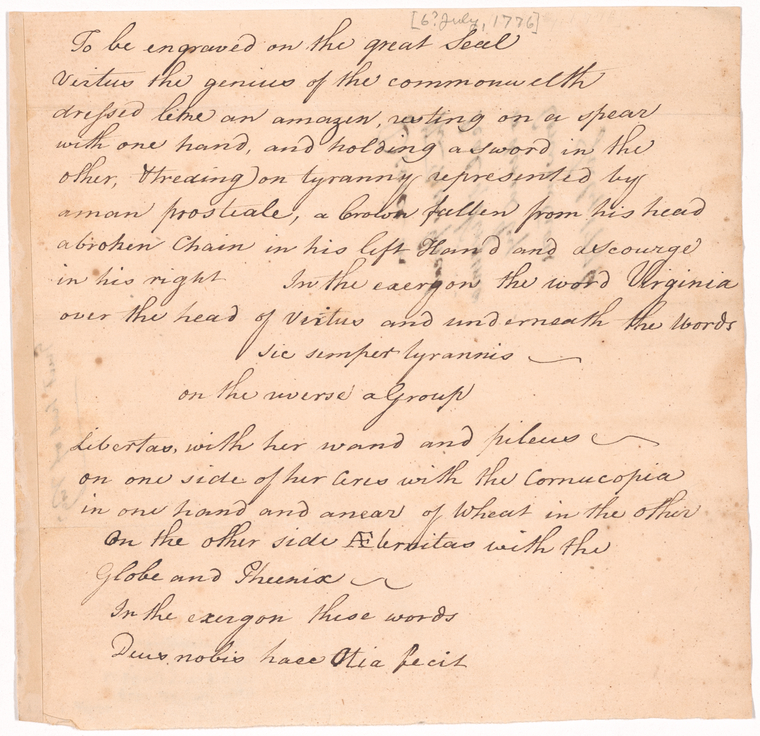 [6? July, 1776]
To be engraved on the great Seal
Virtus the genius of the commonwelth
dressed like an amazon, resting on a spear
with one hand, and holding a sword in the
other, & treding on tyranny represented by
a man prostrate, a Crown fallen from his head
a broken Chain in his left Hand and a scourge
in his right In the exergon the word Virginia
over the head of Virtus and underneath the Words
sic semper tyrannis
on the reverse a Group
Libertas, with her wand and pileus
on one side of her Ceres with the Cornucopia
in one hand and an ear of Wheat in the other
On the other side Æternitas with the
Globe and Pheenix
In the exergon these words
Deus nobis haec Otia fecit